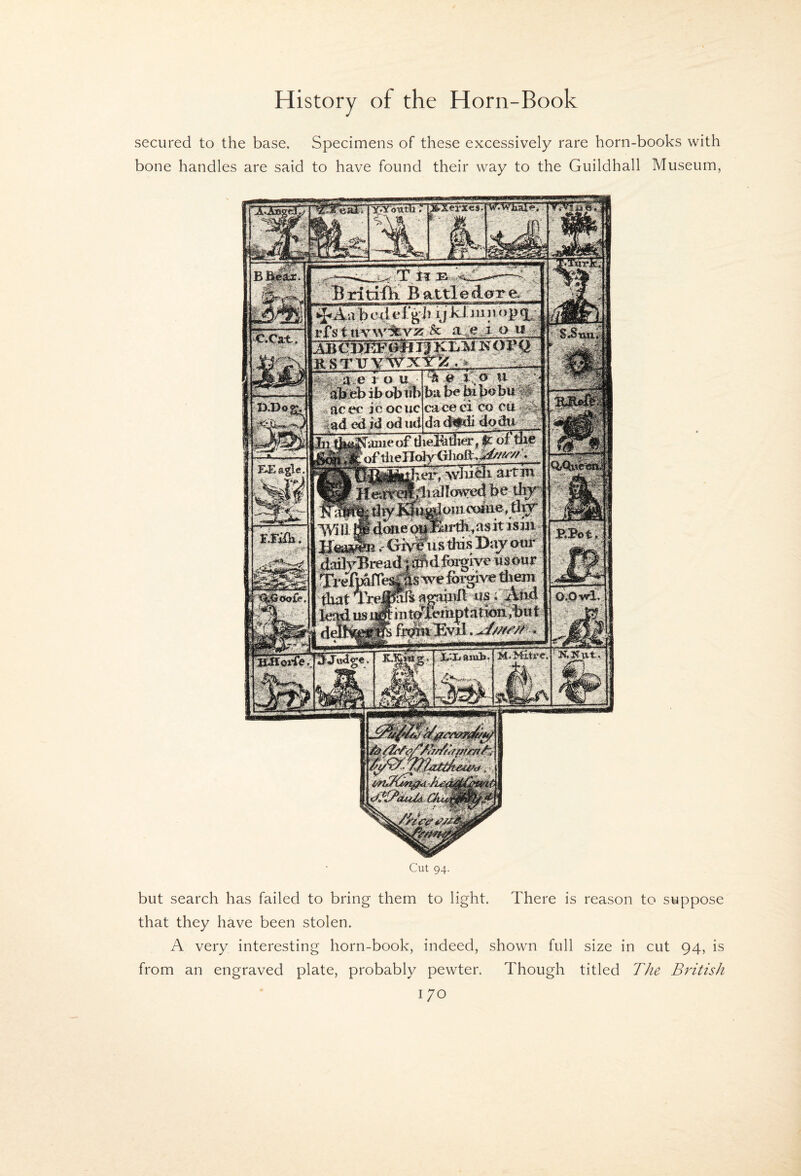 History of the Horn-Book
secured to the base. Specimens of these excessively rare horn-books with
bone handles are said to have found their way to the Guildhall Museum,
A.Angel.
Z.Zeal.
Y.Youth.
X.Xerxes.
W.Whale.
V.Vine.
B Bear.
C.Cat.
D.Dog.
E.Eagle.
F.Fiſh.
G.Gooſe.
H.Horſe.
J.Judge.
K.King.
L.Lamb.
M.Mitre.
N.Nut.
O.Owl.
P.Pot.
Q.Queen.
R.Roſe.
S.Sun.
T.Turk.
THE
Britiſh Battledore.
✠Aabcdefghijklmnopq
rſstuvwxyz & a e i o u
ABCDEFGHIJKLMNOPQ
RSTUVWXYZ.
a e i o u a e i o u
ab eb ib ob ub ba be bi bo bu
ac ec ic oc uc ca ce ci co cu
ad ed id od ud da de di do du
In the Name of the Father, & of the
Son, & of the Holy Ghoſt. Amen.
Our Father, which art in
Heaven, hallowed be thy
Name; thy Kingdom come, thy
Will be done on Earth, as it is in
Heaven. Give us this Day our
daily Bread; and forgive us our
Treſpaſſes, as we forgive them
that Treſpaſs againſt us: And
lead us not into Temptation, but
deliver us from Evil. Amen.
according
to Act of Parliament,
by Matthews,
in Kings-head Court
St. Pauls Church
Price one
Penny
Cut 94.
but search has failed to bring them to light. There is reason to suppose
that they have been stolen.
A very interesting horn-book, indeed, shown full size in cut 94, is
from an engraved plate, probably pewter. Though titled The British
170